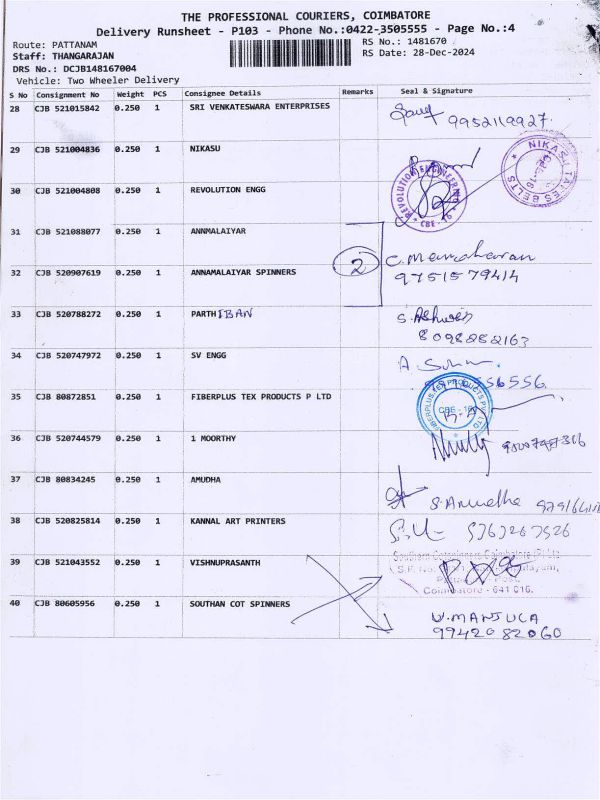 THE PROFESSIONAL COURIERS, COIMBATORE
Delivery Runsheet - P103 - Phone No.:0422-3505555 - Page No.:4
Route: PATTANAM
RS No.: 1481670
Staff: THANGARAJAN
RS Date: 28-Dec-2024
DRS No.: DCJB148167004
Vehicle: Two Wheeler Delivery
S No Consignment No Weight PCS Consignee Details Remarks Seal & Signature
28 CJB 521015842 0.250 1 SRI VENKATESWARA ENTERPRISES
9952119927
29 CJB 521004836 0.250 1 NIKASU
NIKASU TAPES BELTS
30 CJB 521004808 0.250 1 REVOLUTION ENGG
REVOLUTION ENGINEERING
CBE - 16
31 CJB 521088077 0.250 1 ANNMALAIYAR
2 C. Manoharan
32 CJB 520907619 0.250 1 ANNAMALAIYAR SPINNERS
9751579414
33 CJB 520788272 0.250 1 PARTHIBAN
S. Ashwin
8098282163
34 CJB 520747972 0.250 1 SV ENGG
35 CJB 80872851 0.250 1 FIBERPLUS TEX PRODUCTS P LTD
FIBERPLUS TEX PRODUCTS PVT LTD
CBE - 16
36 CJB 520744579 0.250 1 1 MOORTHY
37 CJB 80834245 0.250 1 AMUDHA
S. Amudha
38 CJB 520825814 0.250 1 KANNAL ART PRINTERS
39 CJB 521043552 0.250 1 VISHNUPRASANTH
Coimbatore - 641 016.
40 CJB 80605956 0.250 1 SOUTHAN COT SPINNERS
W. MANJULA
9942082060